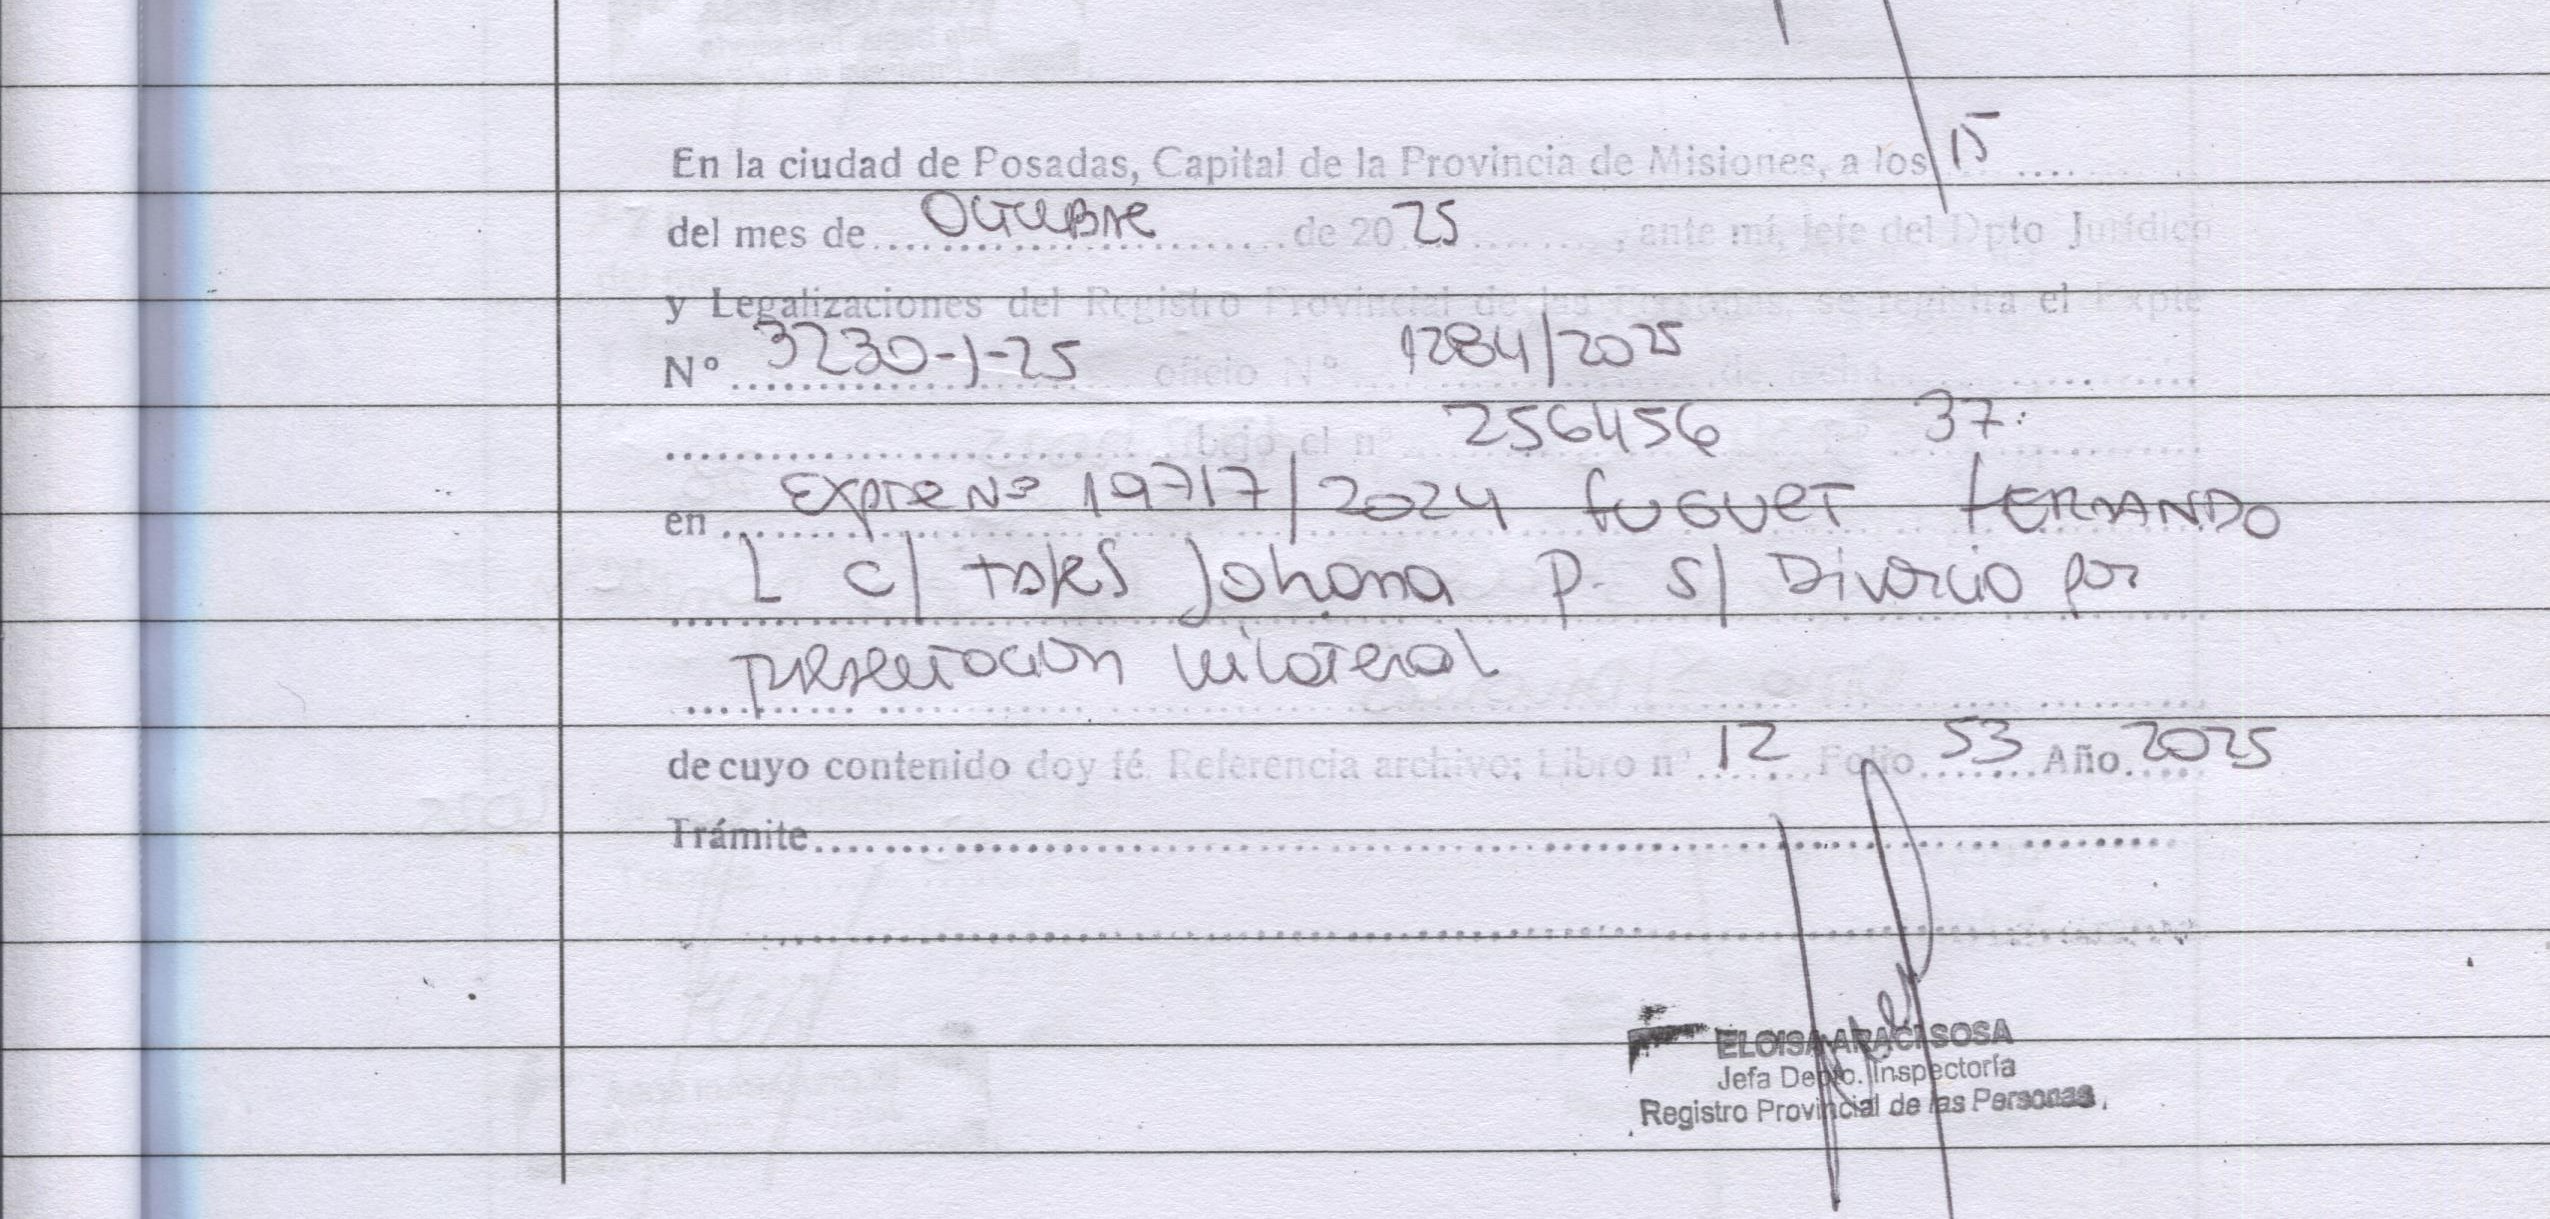 En la ciudad de Posadas, Capital de la Provincia de Misiones, a los 15
del mes de Octubre de 20 25, ante mí, Jefe del Dpto Jurídico
y Legalizaciones del Registro Provincial de las Personas, se registra el Expte
Nº 3230-J-25 oficio Nº 1284/2025 de fecha
bajo el nº 256456 37
en Expte Nº 19717/2024 FUGUET FERNANDO
L c/ Johana P. s/ Divorcio por
presentacion unilateral
de cuyo contenido doy fé. Referencia archivo: Libro nº 12 Folio 53 Año 2025
Trámite
ELOISA ARACI SOSA
Jefa Depto. Inspectoría
Registro Provincial de las Personas